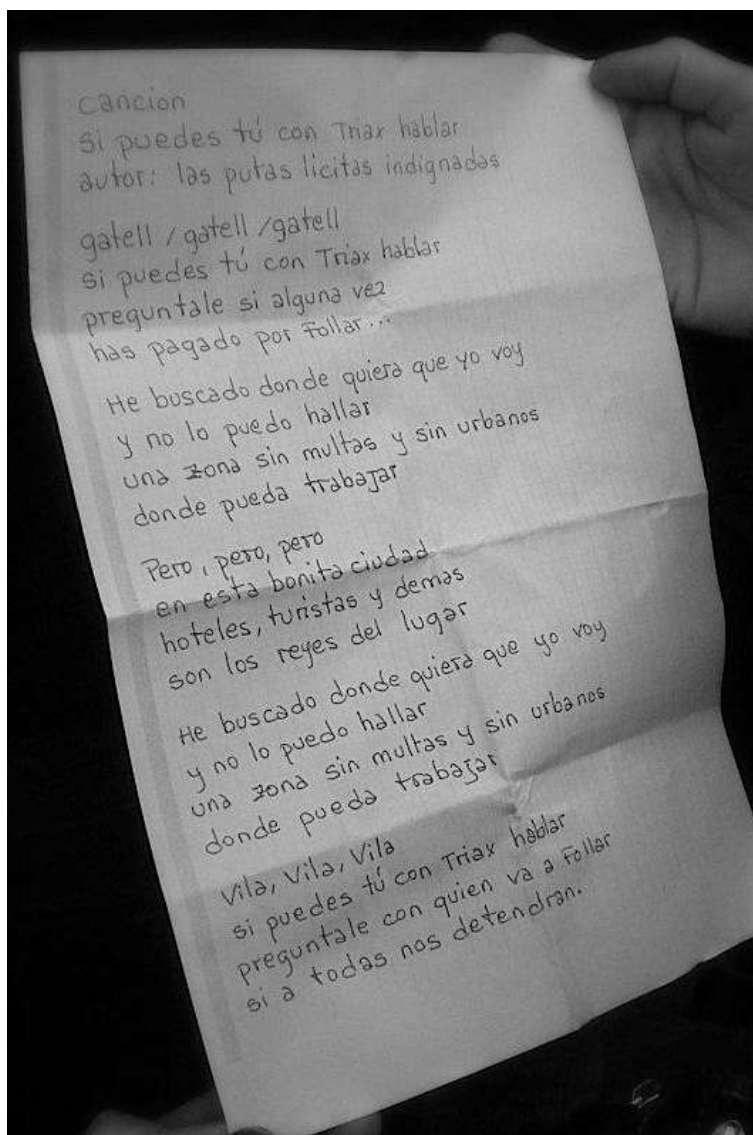 cancion
si puedes tú con Triax hablar
autor: las putas licitas indignadas
gatell / gatell / gatell
si puedes tú con Triax hablar
preguntale si alguna vez
has pagado por Follar...
He buscado donde quiera que yo voy
y no lo puedo hallar
una zona sin multas y sin urbanos
donde pueda trabajar
Pero, pero, pero
en esta bonita ciudad
hoteles, turistas y demas
son los reyes del lugar
He buscado donde quiera que yo voy
y no lo puedo hallar
una zona sin multas y sin urbanos
donde pueda trabajar
Vila, Vila, Vila
si puedes tú con Triax hablar
preguntale con quien va a Follar
si a todas nos detendran.